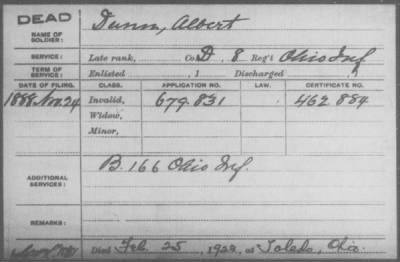 DEAD
NAME OF SOLDIER: Dunn, Albert
SERVICE: Late rank, Co. D, 8 Reg't Ohio Inf
TERM OF SERVICE: Enlisted , 1 Discharged , 1
DATE OF FILING. CLASS. APPLICATION NO. LAW. CERTIFICATE NO.
1888 Nov. 24 Invalid, 679.831 462.884
Widow,
Minor,
ADDITIONAL SERVICES: B. 166 Ohio Inf.
REMARKS:
Died Feb. 25, 1922, at Toledo, Ohio.